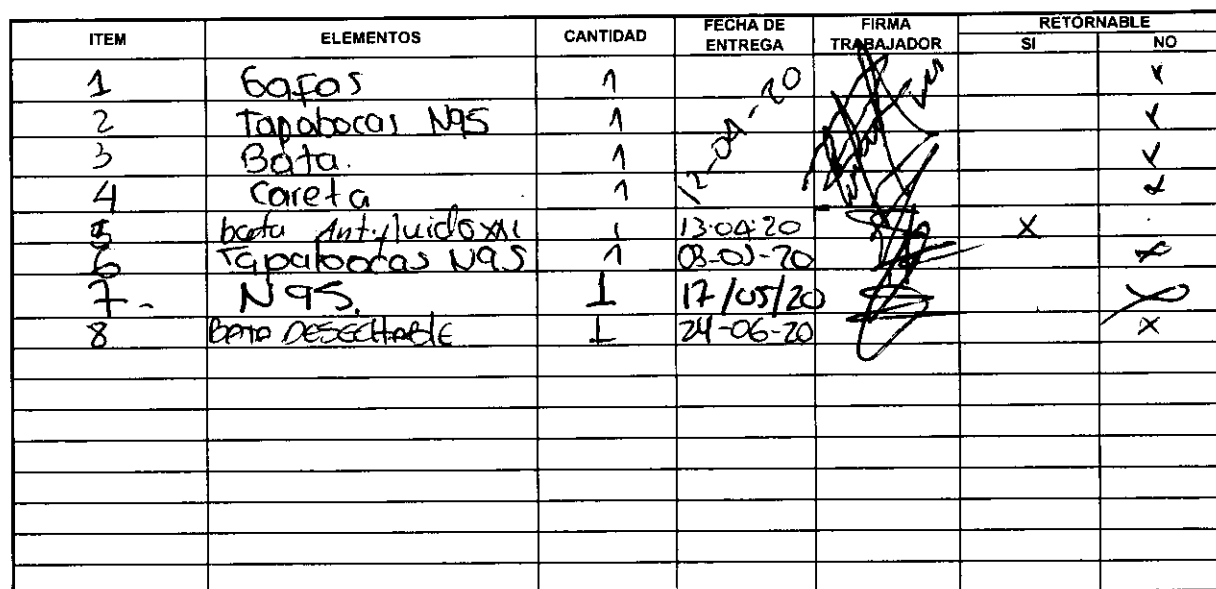 ITEM ELEMENTOS CANTIDAD FECHA DE ENTREGA FIRMA TRABAJADOR RETORNABLE SI NO
1 Gafas 1 12-04-20
2 Tapabocas N95 1
3 Bata. 1
4 Careta 1
5 bata Antifluido XXL 1 13-04-20 X
6 Tapabocas N95 1 X
7- N95. 1 17/05/20 X
8 BATA DESECHABLE 1 24-06-20 X